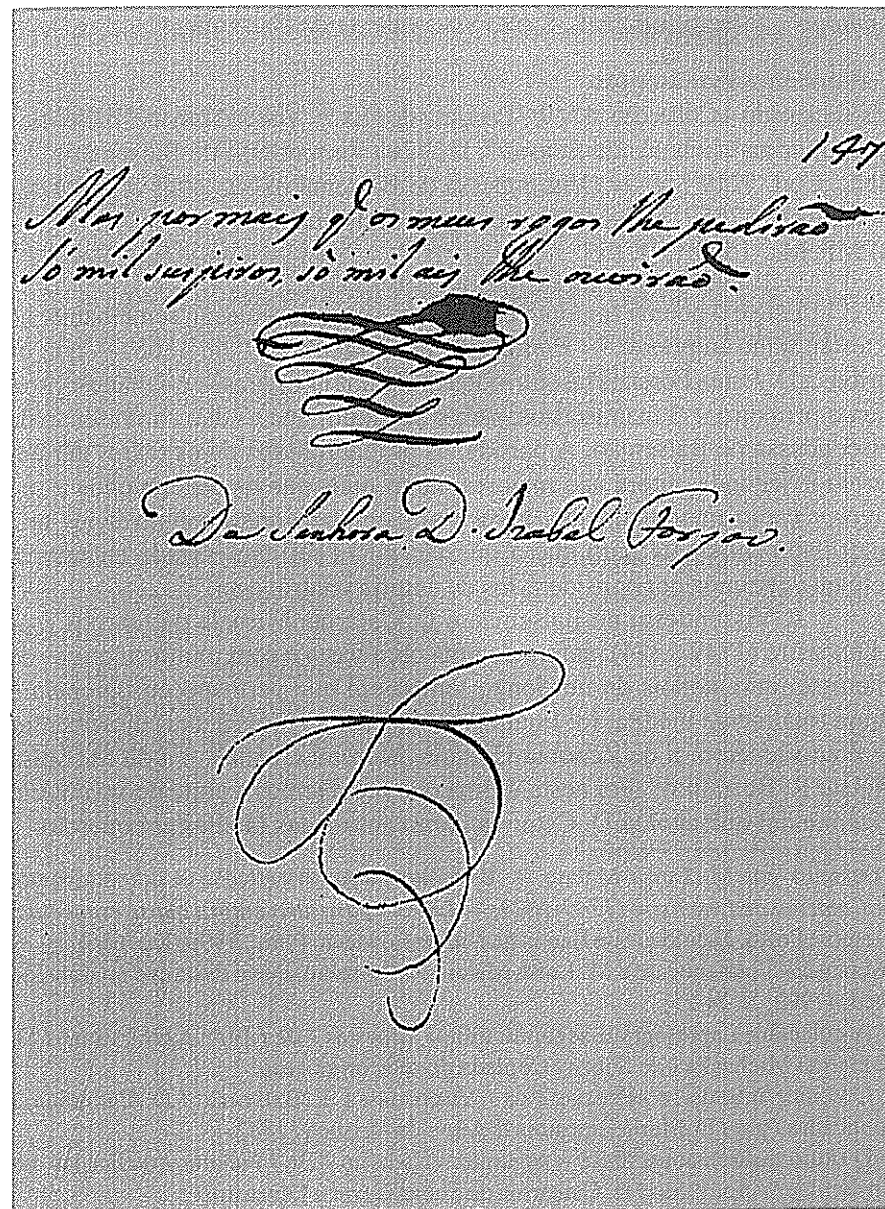 147
Mas por mais q̃ os meus rogos lhe pedirão
Só mil suspiros, só mil ais lhe ouvirão.
Da Senhora D. Izabel Forjaz.